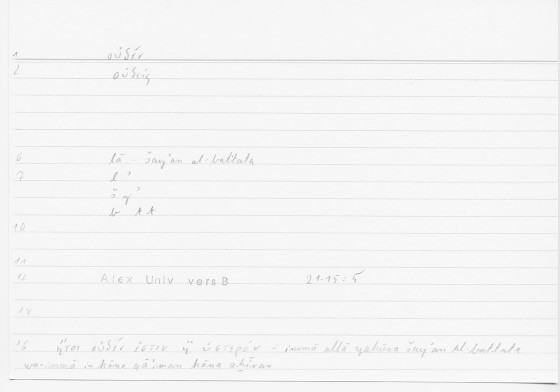 1 οὐδέν
2 οὐδείς
6 lā - šayʾan al-battata
7 l ʾ
š y ʾ
b t t
10
11
12 Alex Univ vers B 21-15 : 5
14
16 ἤτοι οὐδέν ἐστιν ἢ ὕστερον - immā allā yakūna šayʾan al-battata
wa-immā in kāna qāʾiman kāna aḫīran